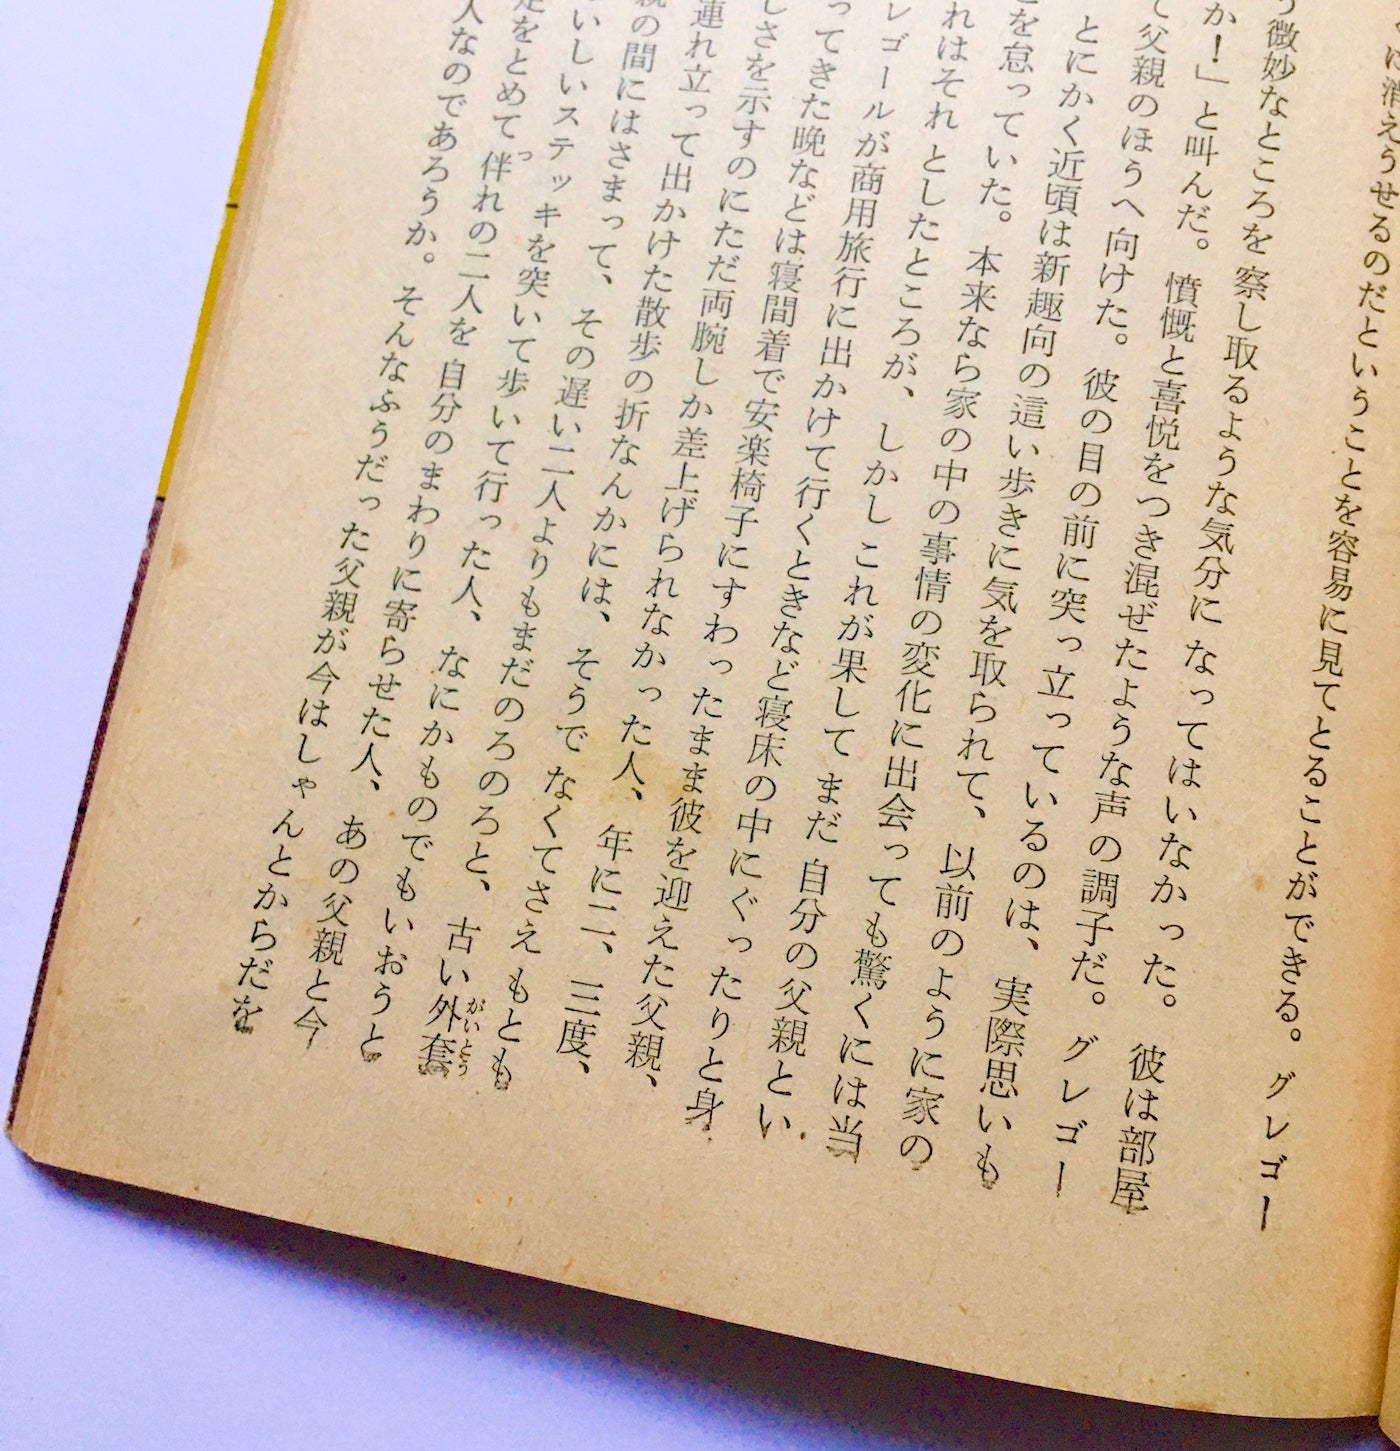 に消えうせるのだということを容易に見てとることができる。グレゴー
微妙なところを察し取るような気分になってはいなかった。彼は部屋
か！」と叫んだ。憤慨と喜悦をつき混ぜたような声の調子だ。グレゴー
て父親のほうへ向けた。彼の目の前に突っ立っているのは、実際思いも
とにかく近頃は新趣向の這い歩きに気を取られて、以前のように家の
を怠っていた。本来なら家の中の事情の変化に出会っても驚くには当
れはそれとしたところが、しかしこれが果してまだ自分の父親とい
レゴールが商用旅行に出かけて行くときなど寝床の中にぐったりと身
ってきた晩などは寝間着で安楽椅子にすわったまま彼を迎えた父親、
しさを示すのにただ両腕しか差上げられなかった人、年に二、三度、
連れ立って出かけた散歩の折なんかには、そうでなくてさえもとも
親の間にはさまって、その遅い二人よりもまだのろのろと、古い外套
いしいステッキを突いて歩いて行った人、なにかものでもいおうと
をとめて伴れの二人を自分のまわりに寄らせた人、あの父親と今
人なのであろうか。そんなふうだった父親が今はしゃんとからだを